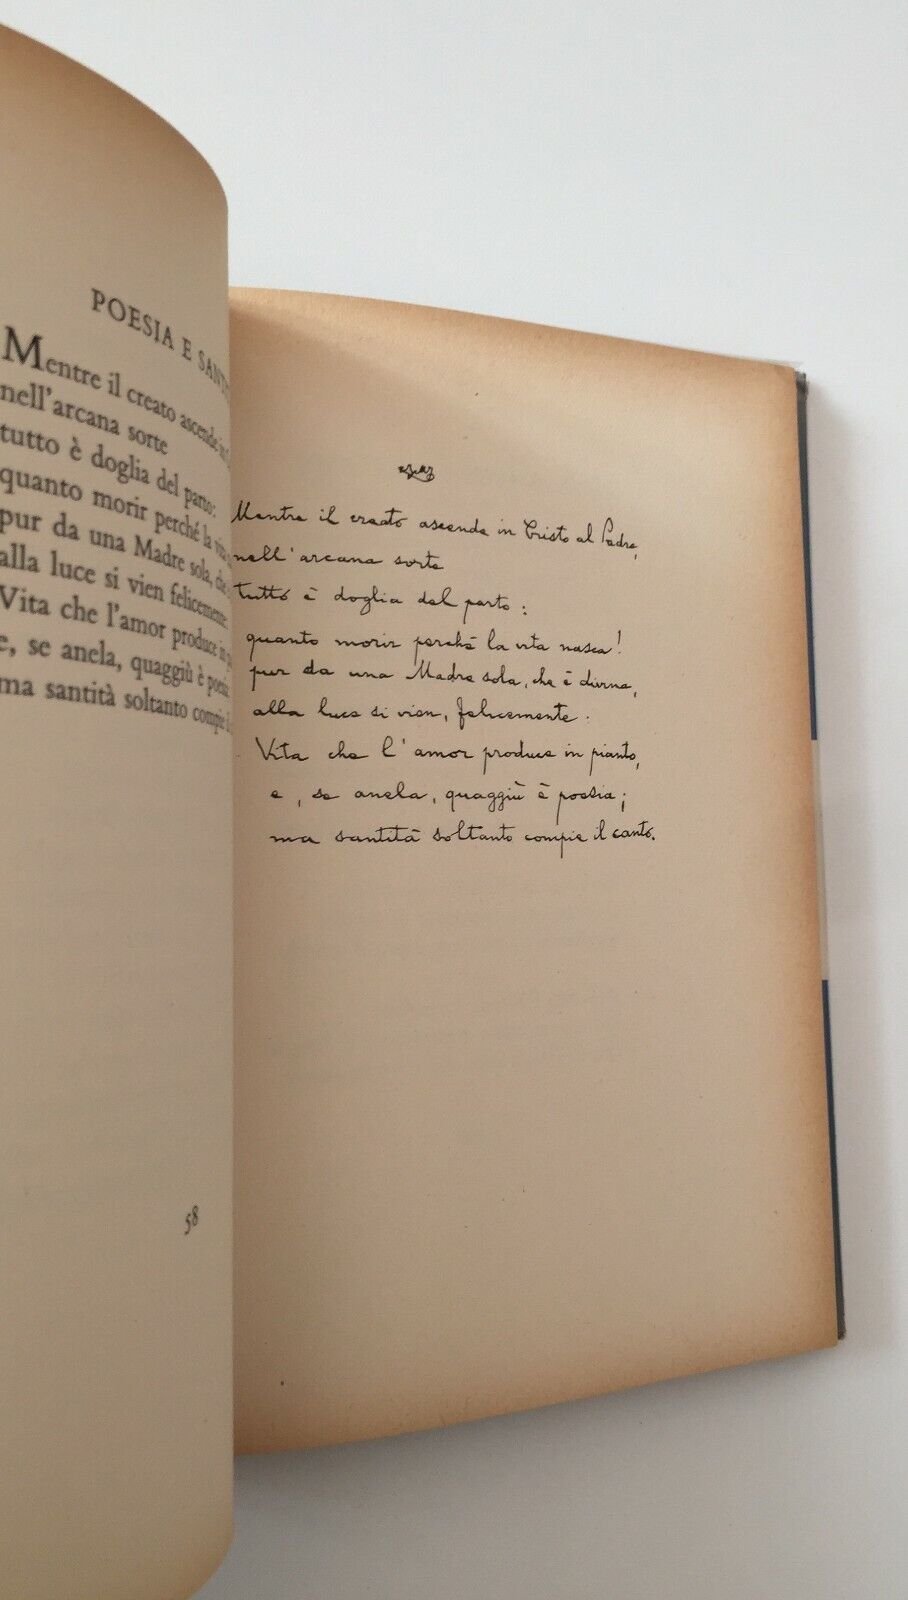 POESIA E SANT
Mentre il creato ascende in
nell'arcana sorte
tutto è doglia del parto:
quanto morir perché la vita
pur da una Madre sola, che
alla luce si vien felicemente:
Vita che l'amor produce in
e, se anela, quaggiù è poesia
ma santità soltanto compie
58
Mentre il creato ascende in Cristo al Padre,
nell'arcana sorte
tutto è doglia del parto:
quanto morir perché la vita nasca!
pur da una Madre sola, che è divina,
alla luce si vien, felicemente.
Vita che l'amor produce in pianto,
e, se anela, quaggiù è poesia;
ma santità soltanto compie il canto.